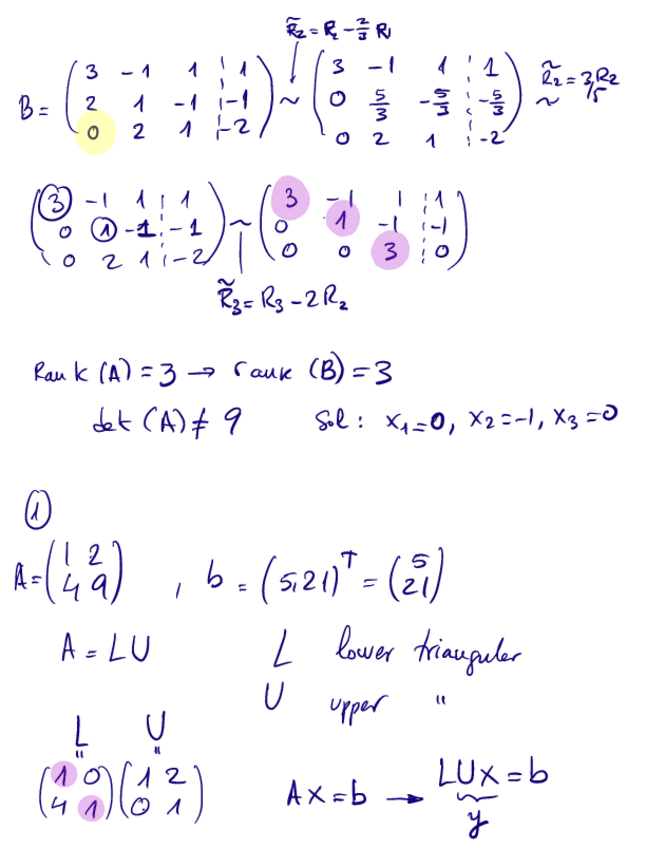 R̃₂ = R₂ - 2/3 R₁
B = ( 3 -1 1 ¦ 1 ; 2 1 -1 ¦ -1 ; 0 2 1 ¦ -2 ) ~ ( 3 -1 1 ¦ 1 ; 0 5/3 -5/3 ¦ -5/3 ; 0 2 1 ¦ -2 ) R̃₂ = 3/5 R₂ ~
( 3 -1 1 ¦ 1 ; 0 1 -1 ¦ -1 ; 0 2 1 ¦ -2 ) ~ ( 3 -1 1 ¦ 1 ; 0 1 -1 ¦ -1 ; 0 0 3 ¦ 0 )
R̃₃ = R₃ - 2 R₂
Rank (A) = 3 → rank (B) = 3
det (A) ≠ 9 Sol : x₁=0, x₂=-1, x₃=0
①
A = ( 1 2 ; 4 9 ) , b = (5,21)ᵀ = ( 5 ; 21 )
A = LU L lower trianguler
U upper "
L U
" "
( 1 0 ; 4 1 ) ( 1 2 ; 0 1 ) Ax = b → LUx = b
y